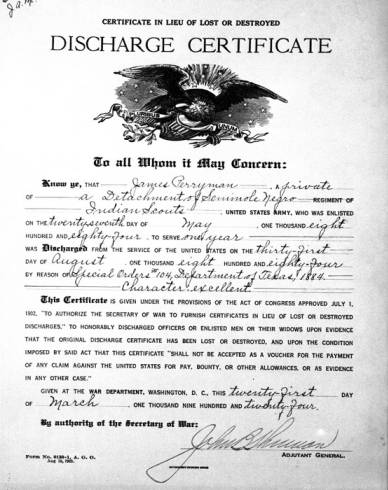 J.A.M.
CERTIFICATE IN LIEU OF LOST OR DESTROYED
DISCHARGE CERTIFICATE
To all Whom it May Concern:
Know ye, THAT James Perryman, a private
OF a Detachment of Seminole Negro REGIMENT OF
Indian Scouts, UNITED STATES ARMY, WHO WAS ENLISTED
ON THE twenty seventh DAY OF May, ONE THOUSAND eight
HUNDRED AND eighty-four, TO SERVE one year
WAS Discharged FROM THE SERVICE OF THE UNITED STATES ON THE thirty first
DAY OF August, ONE THOUSAND eight HUNDRED AND eighty-four
BY REASON OF Special Orders 104, Department of Texas, 1884.
Character excellent.
This Certificate IS GIVEN UNDER THE PROVISIONS OF THE ACT OF CONGRESS APPROVED JULY 1,
1902, "TO AUTHORIZE THE SECRETARY OF WAR TO FURNISH CERTIFICATES IN LIEU OF LOST OR DESTROYED
DISCHARGES," TO HONORABLY DISCHARGED OFFICERS OR ENLISTED MEN OR THEIR WIDOWS UPON EVIDENCE
THAT THE ORIGINAL DISCHARGE CERTIFICATE HAS BEEN LOST OR DESTROYED, AND UPON THE CONDITION
IMPOSED BY SAID ACT THAT THIS CERTIFICATE "SHALL NOT BE ACCEPTED AS A VOUCHER FOR THE PAYMENT
OF ANY CLAIM AGAINST THE UNITED STATES FOR PAY, BOUNTY, OR OTHER ALLOWANCES, OR AS EVIDENCE
IN ANY OTHER CASE."
GIVEN AT THE WAR DEPARTMENT, WASHINGTON, D. C., THIS twenty first DAY
OF March, ONE THOUSAND NINE HUNDRED AND twenty-four.
By authority of the Secretary of War:
John B.
ADJUTANT GENERAL.
Form No. 0150-1, A. G. O.